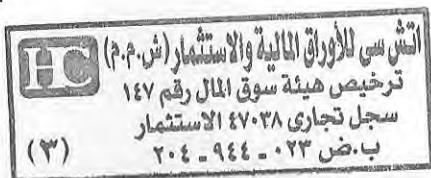 اتش سى للأوراق المالية والاستثمار (ش.م.م) HC
ترخيص هيئة سوق المال رقم ١٤٧
سجل تجارى ٤٧٠٣٨ الاستثمار
ب.ض ٠٢٣ - ٩٤٤ - ٢٠٤ (٣)